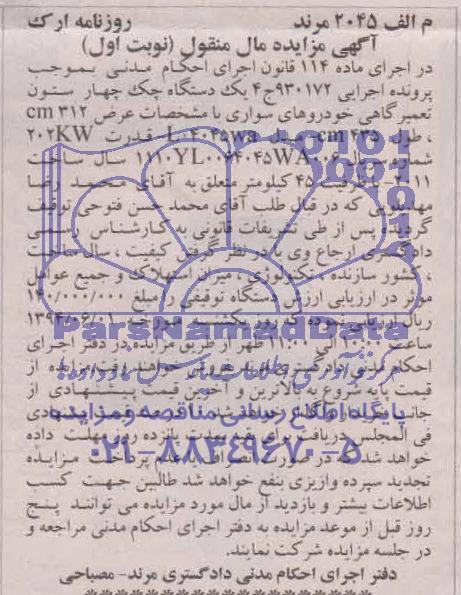 م الف ۲۰۴۵ مرند روزنامه ارک
آگهی مزایده مال منقول (نوبت اول)
در اجرای ماده ۱۱۴ قانون اجرای احکام مدنی بموجب
پرونده اجرایی ۹۳۰۱۷۲ج۴ یک دستگاه چک چهار ستون
تعمیرگاهی خودروهای سواری با مشخصات عرض ۳۱۲ cm
، طول ۴۳۵ cm مدل L۴۰۴۵wa قدرت ۲۰۲KW
شماره سریال سال ساخت
۲۰۱۱- با ظرفیت ۴۵ کیلومتر متعلق به آقای محمد رضا
که در قبال طلب آقای محمد حسن فتوحی توقیف
گردیده پس از طی تشریفات قانونی به کارشناس رسمی
دادگستری ارجاع وی با در نظر گرفتن کیفیت ، سال ساخت
، کشور سازنده ، تکنولوژی ، میزان استهلاک و جمیع عوامل
موثر در ارزیابی ارزش دستگاه توقیفی را مبلغ
ریال ارزیابی نموده که روز یکشنبه مورخه ۱۳۹۴/۰۶/۰۱
ساعت ۱۰:۰۰ الی ۱۱:۰۰ ظهر از طریق مزایده در دفتر اجرای
احکام مدنی دادگستری مرند بفروش خواهد رفت مزایده از
قیمت پایه شروع به بالاترین و آخرین قیمت پیشنهادی از
فی المجلس دریافت برای مدت پانزده روز مهلت داده
خواهد شد که در صورت انصراف یا عدم پرداخت مزایده
تجدید سپرده واریزی بنفع خواهد شد طالبین جهت کسب
اطلاعات بیشتر و بازدید از مال مورد مزایده می توانند پنج
روز قبل از موعد مزایده به دفتر اجرای احکام مدنی مراجعه و
در جلسه مزایده شرکت نمایند.
دفتر اجرای احکام مدنی دادگستری مرند- مصباحی
ParsNamadData
پایگاه اطلاع رسانی مناقصه و مزایده
۰۲۱-۸۸۳۴۹۶۷۰-۵